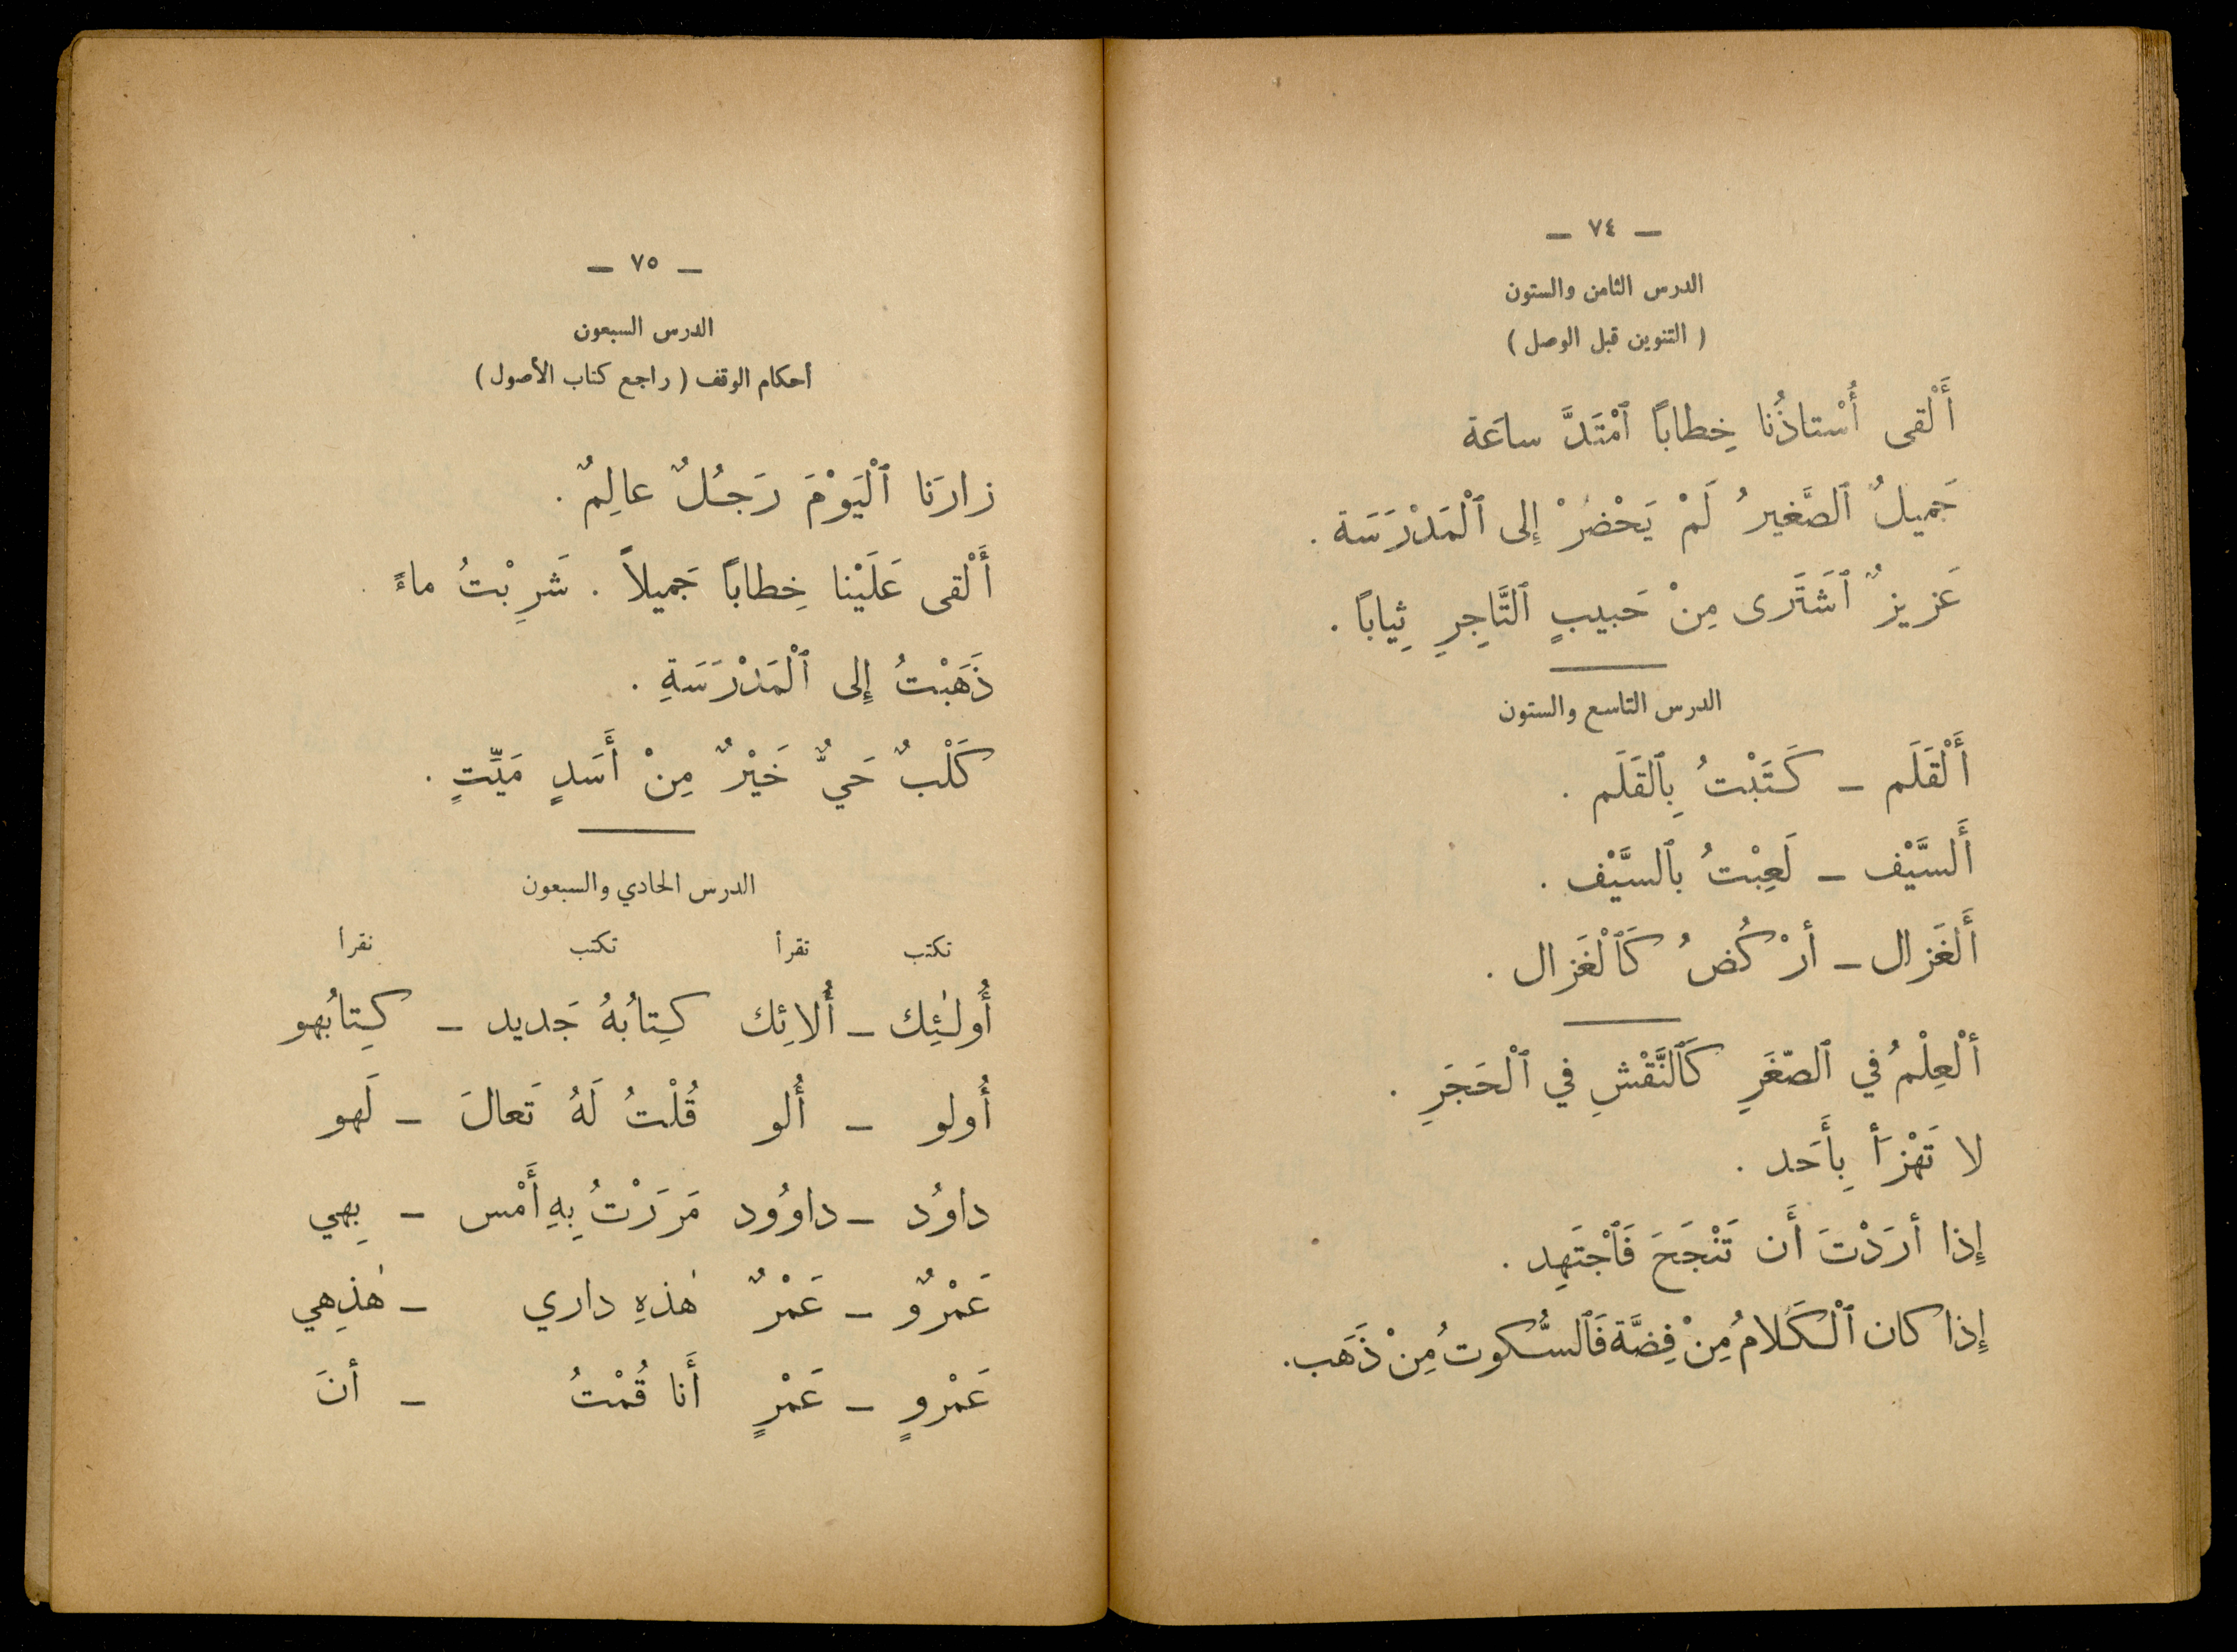 — ٧٤ —
الدرس الثامن والستون
( التنوين قبل الوصل )
أَلْقى أُسْتاذُنا خِطاباً ٱمْتَدَّ ساعَة
جَميلٌ ٱلصَّغيرُ لَمْ يَحْضُرْ إِلى ٱلْمَدْرَسَة .
عَزيزٌ ٱشَتَرى مِنْ حَبيبٍ ٱلتَّاجِرِ ثِياباً .
الدرس التاسع والستون
أَلْقَلَم – كَتَبْتُ بِٱلقَلَم .
أَلسَّيْف – لَعِبْتُ بٱلسَّيْف .
أَلغَزال – أرْكُضُ كَٱلْغَزال .
ألْعِلْمُ في ٱلصّغَرِ كَٱلنَّقْشِ في ٱلْحَجَرِ .
لا تَهْزَأ بِأَحَد .
إِذا أرَدْتَ أَن تَنْجَحَ فَٱجْتَهِد .
إِذا كان ٱلْكَلامُ مِنْ فِضَّة فَٱلسُّكوتُ مِنْ ذَهَب.
— ٧٥ —
الدرس السبعون
أحكام الوقف ( راجع كتاب الأصول )
زارَنا ٱلْيَوْمَ رَجُلٌ عالِمٌ .
أَلْقى عَلَيْنا خِطاباً جَميلاً . شَرِبْتُ ماءً .
ذَهَبْتُ إِلى ٱلْمَدْرَسَةِ .
كَلْبٌ حَيٌّ خَيْرٌ مِنْ أَسَدٍ مَيِّتٍ .
الدرس الحادي والسبعون
تكتب تقرأ تكتب تقرأ
أُولٰئِك – أُلائِك كِتابُهُ جَديد – كِتابُهو
أُولو – أُلو قُلْتُ لَهُ تَعالَ – لَهو
داوُد – داوُود مَرَرْتُ بِهِ أَمْس – بِهي
عَمْرٌو – عَمْرٌ هٰذهِ داري – هٰذِهي
عَمْرٍو – عَمْرٍ أَنا قُمْتُ – أنَ